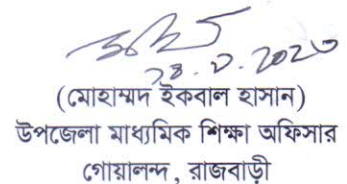 (মোহাম্মদ ইকবাল হাসান)
উপজেলা মাধ্যমিক শিক্ষা অফিসার
গোয়ালন্দ, রাজবাড়ী